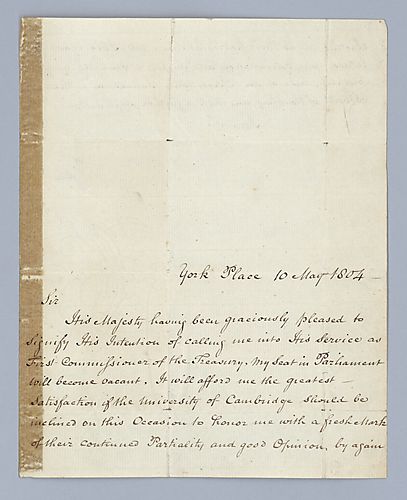 York Place 10 May 1804 -
Sir
His Majesty having been graciously pleased to
signify His Intention of calling me into His Service as
First Commissioner of the Treasury. My Seat in Parliament
will become vacant. It will afford me the greatest -
Satisfaction if the University of Cambridge should be
inclined on this Occasion to honor me with a fresh Mark
of their continued Partiality and good Opinion, by again